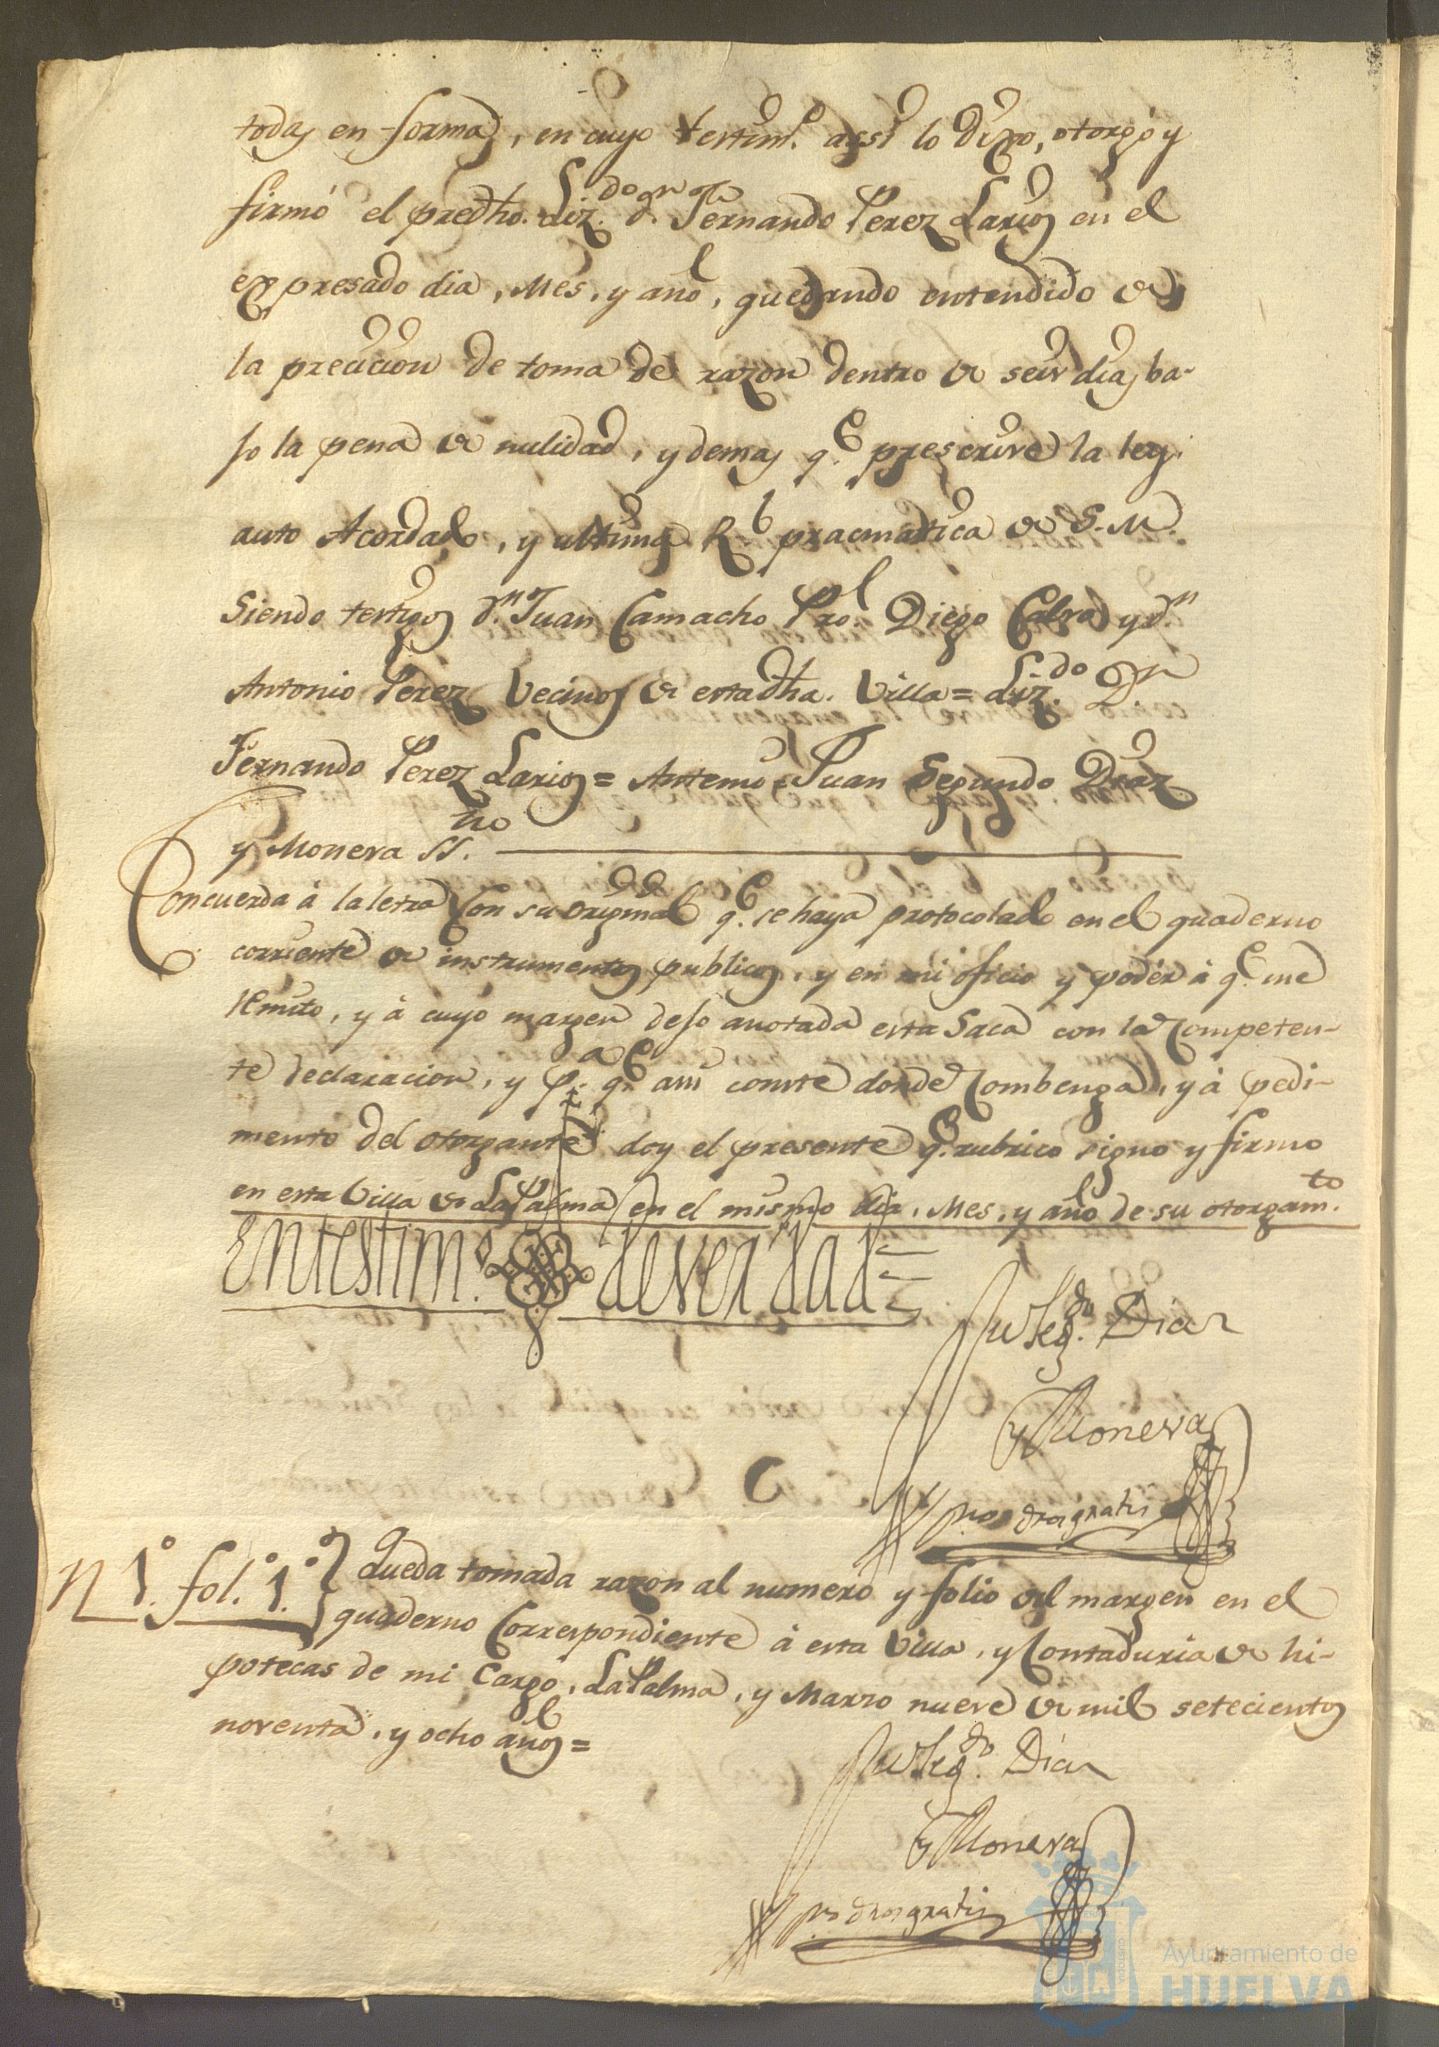 todas en forma, en cuyo testimo. assi lo dixo, otorgó y
firmó el predho. Lizdo. dn. Fernando Perez Larios en el
expresado dia, Mes, y año, quedando entendido de
la precicion de toma de razon dentro de seis dias ba-
jo la pena de nulidad, y demas qe. prescrive la ley
auto Acordado, y ultima Rl. pracmatica de S.M.
Siendo testigos dn. Juan Camacho Pro. Diego Cabra y dn.
Antonio Perez Vecinos de esta dha. Villa = Lizdo. Dn.
Fernando Perez Larios = Antemi, Juan Segundo Diaz
y Monera SSno.
Concuerda à la letra Con su original qe. se haya protocolado en el quaderno
corriente de instrumentos publicos, y en mi oficio y poder à qe. me
remito, y à cuyo margen dejo anotada esta Saca con la Competen-
te declaracion, y pa. qe. assi conste donde Combenga, y à pedi-
mento del otorgante doy el presente qe. rubrico signo y firmo
en esta Villa de La Palma en el mismo dia, Mes, y año de su otorgamto.
En testimo. de verdad
Jun Segdo. Diaz
y Monera
nos dros gratis
N 1º. fol. 1º. Queda tomada razon al numero y folio del margen en el
quaderno Correspondiente à esta Villa, y Contaduria de hi-
potecas de mi Cargo, La Palma, y Marzo nueve de mil setecientos
noventa, y ocho años =
Jun Segdo. Diaz
y Monera
nos dros gratis
Ayuntamiento de
HUELVA